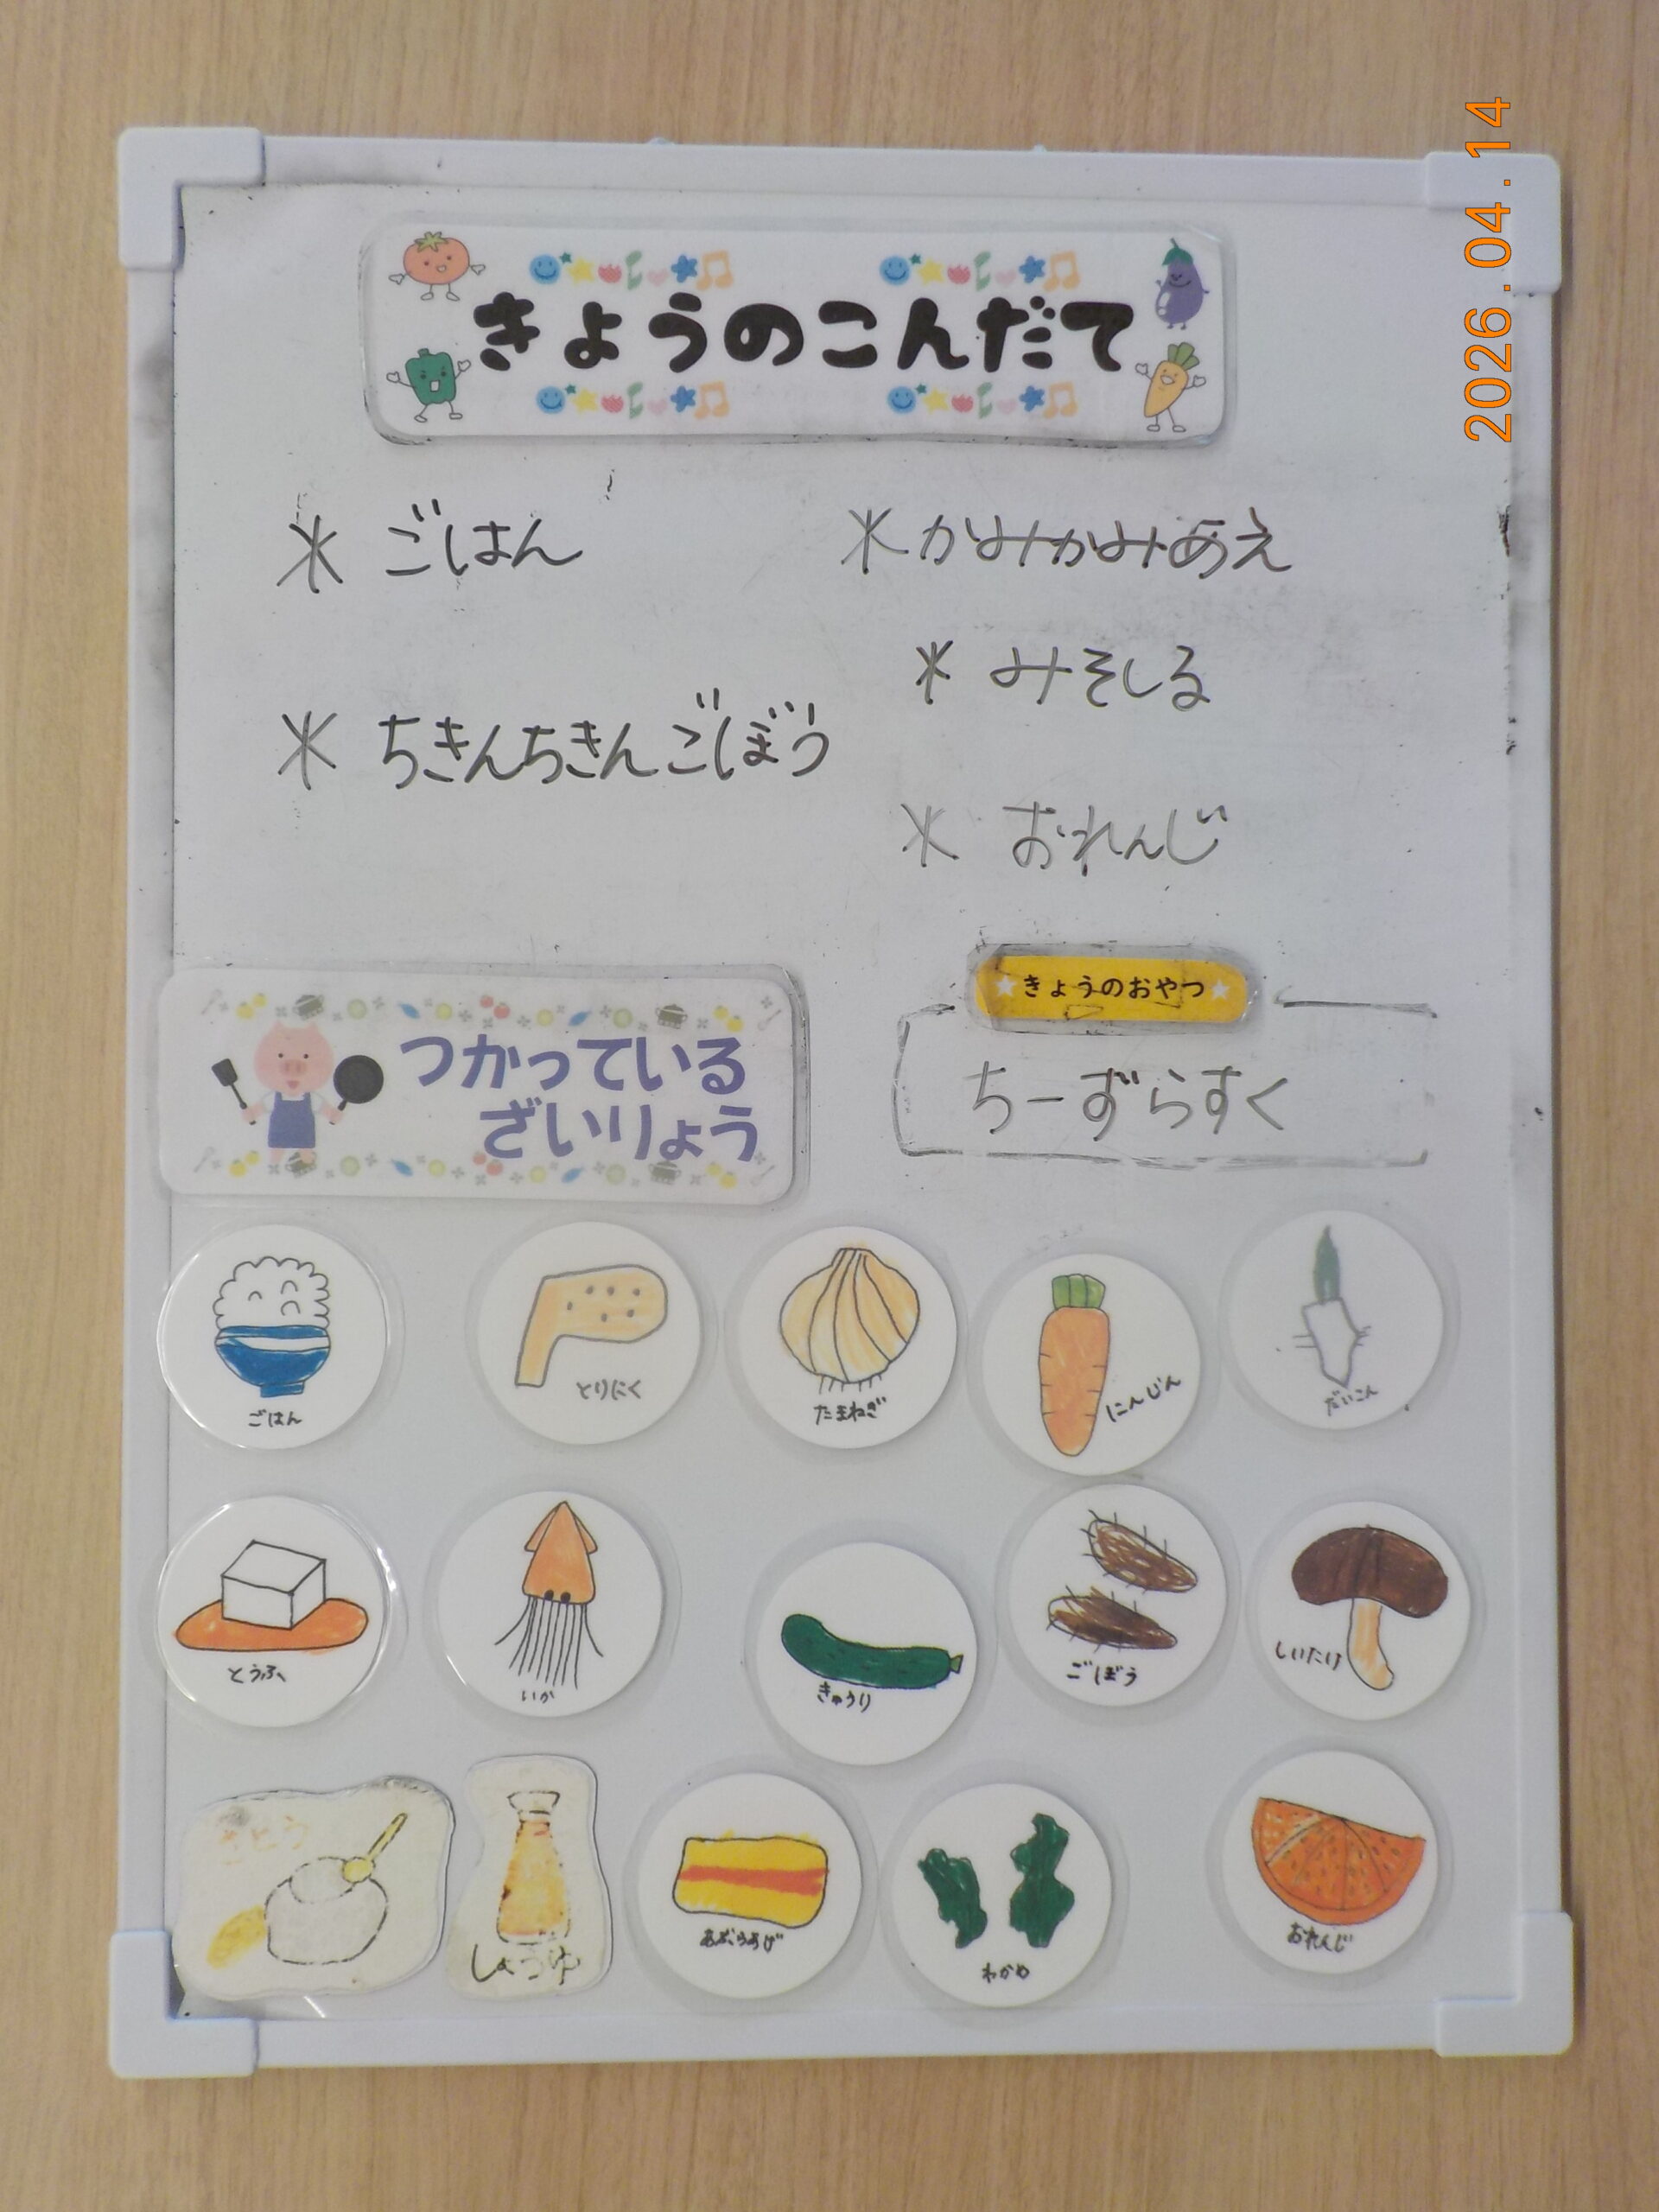 2026.04.14
きょうのこんだて
* ごはん
* ちきんちきんごぼう
* かみかみあえ
* みそしる
* おれんじ
きょうのおやつ
ちーずらすく
つかっている
ざいりょう
ごはん
とりにく
たまねぎ
にんじん
だいこん
とうふ
いか
きゅうり
ごぼう
しいたけ
さとう
しょうゆ
あぶらあげ
わかめ
おれんじ